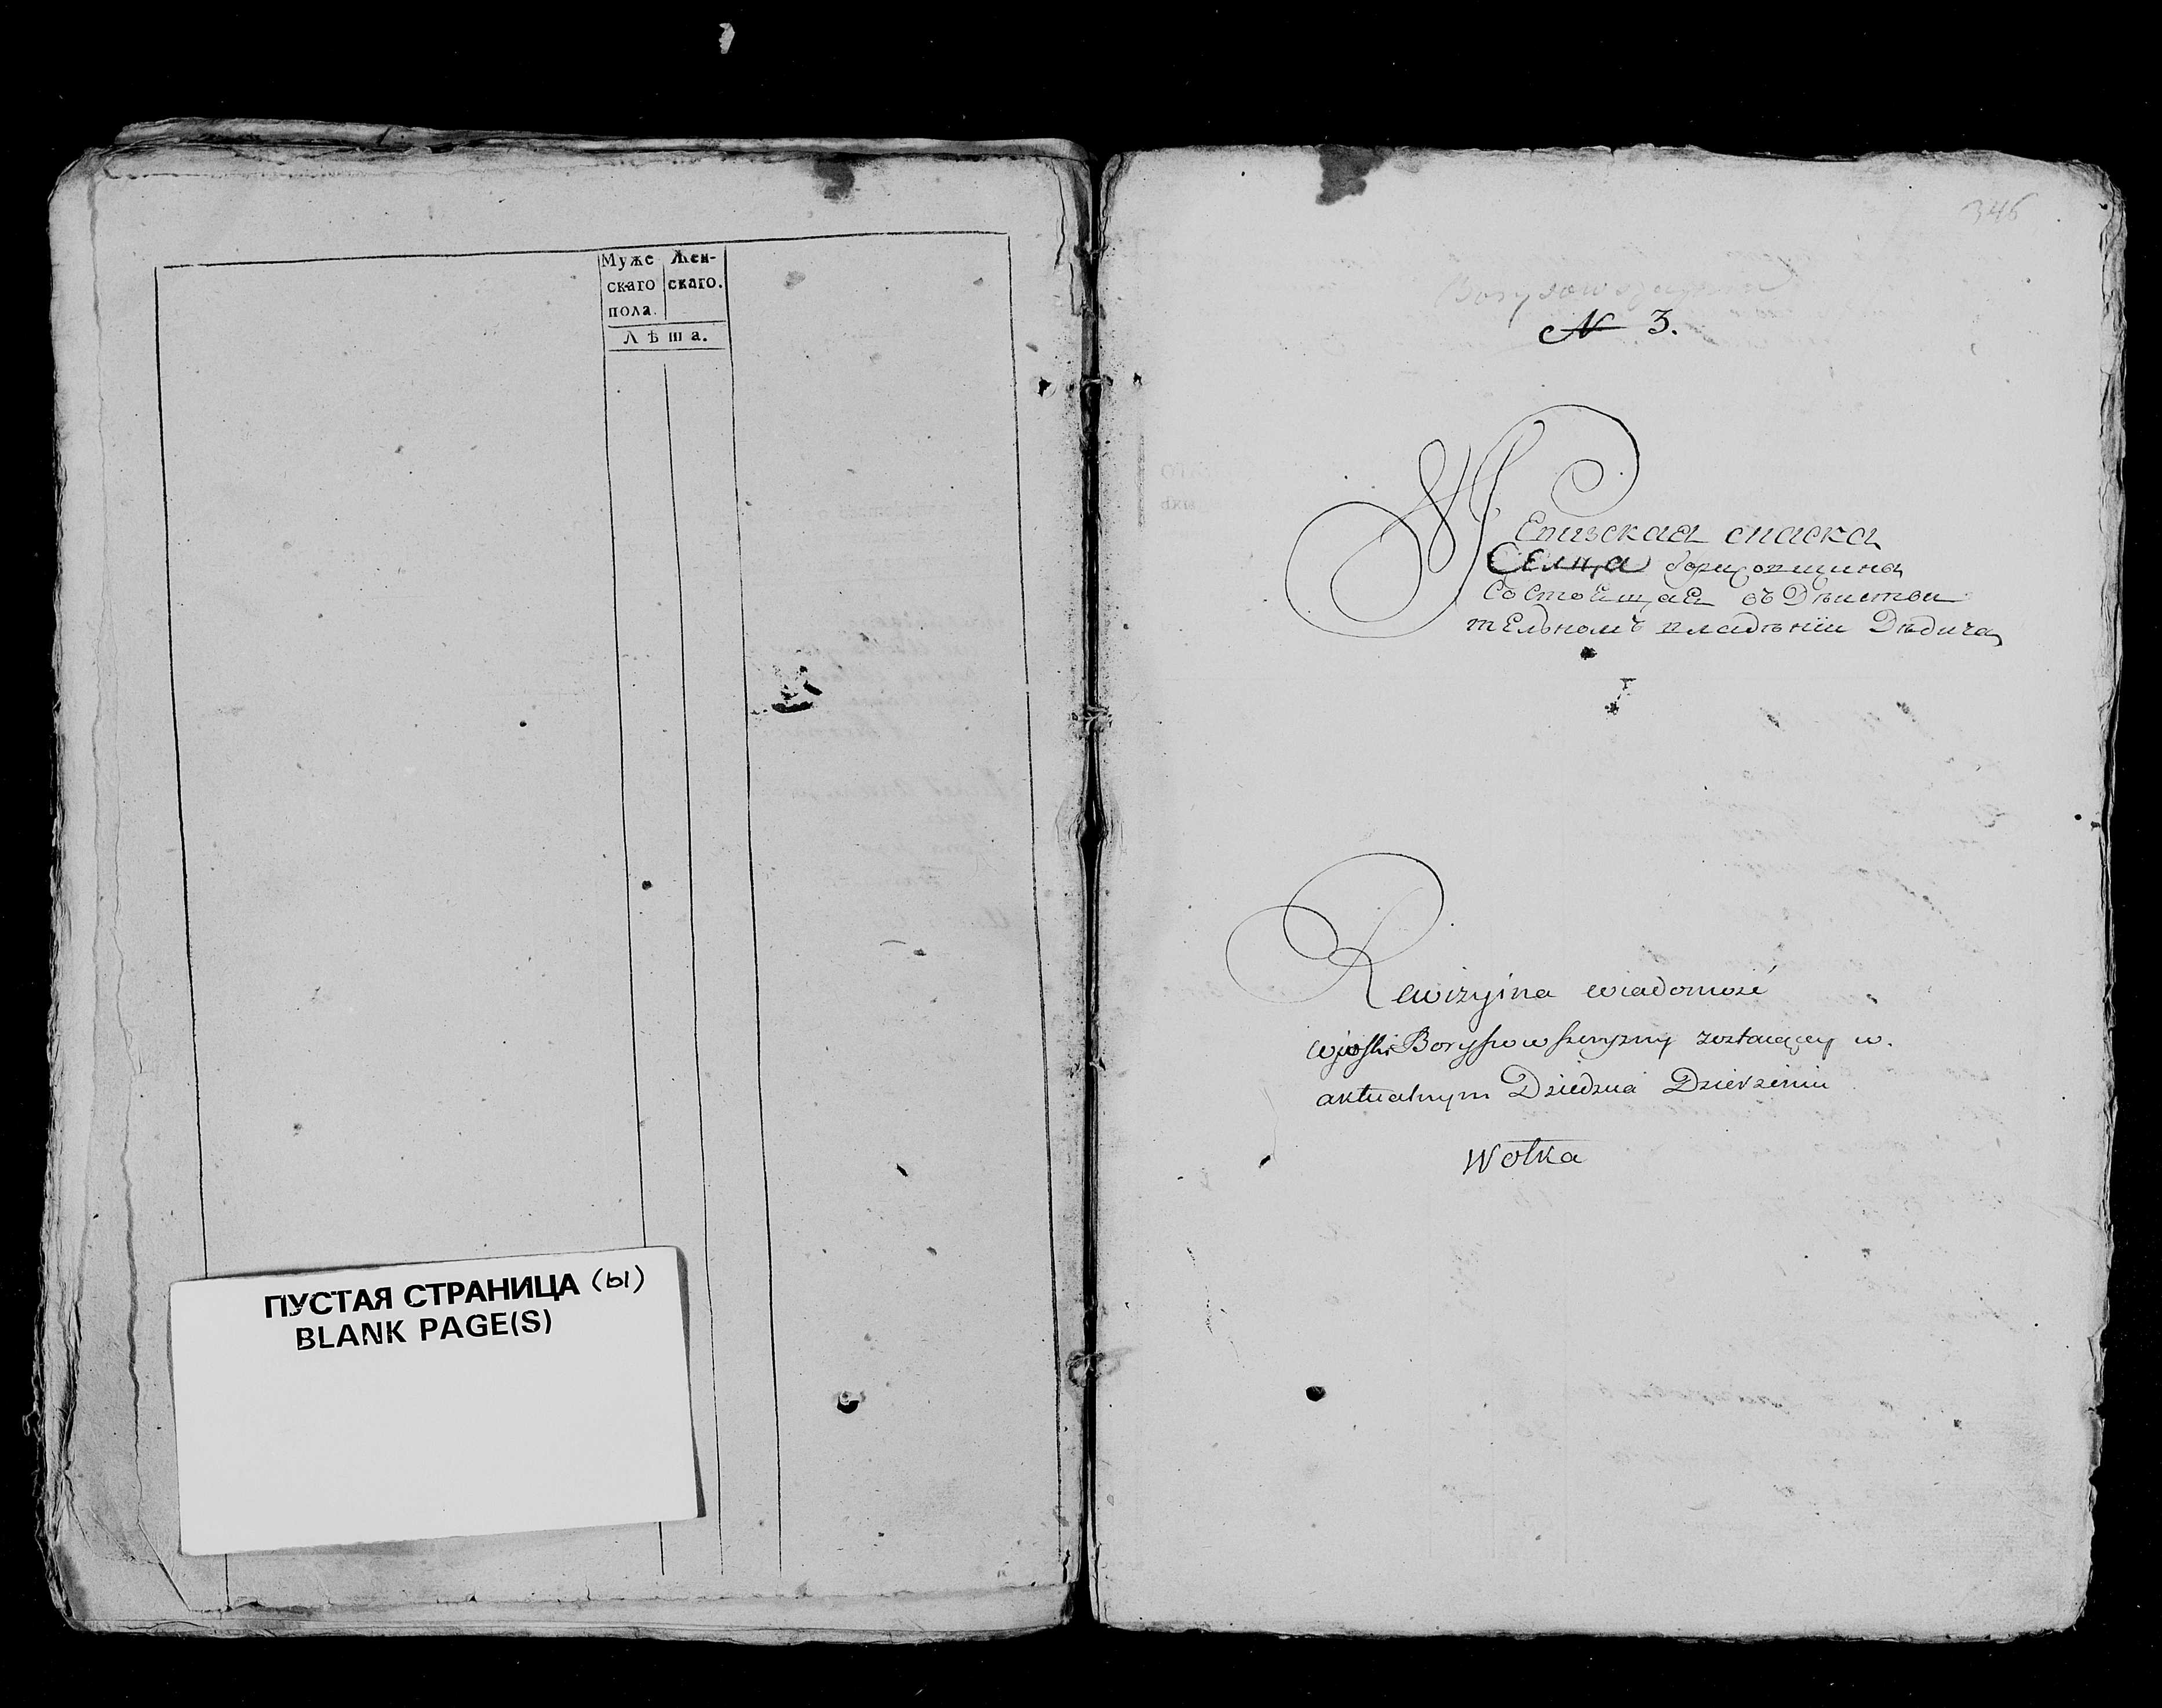 Муже
скаго
пола.
Жен-
скаго.
Лѣта.
ПУСТАЯ СТРАНИЦА (ы)
BLANK PAGE(S)
346
Borysowszczyzna
№ 3.
Селца
Состоящая въ Дѣистви
тельномъ владѣнїи Дѣдича
Rewizyina wiadomość
wioski Borysowszczyzny zostaiącey w
aktualnym Dziedzica Dzierzeniu
Wolka